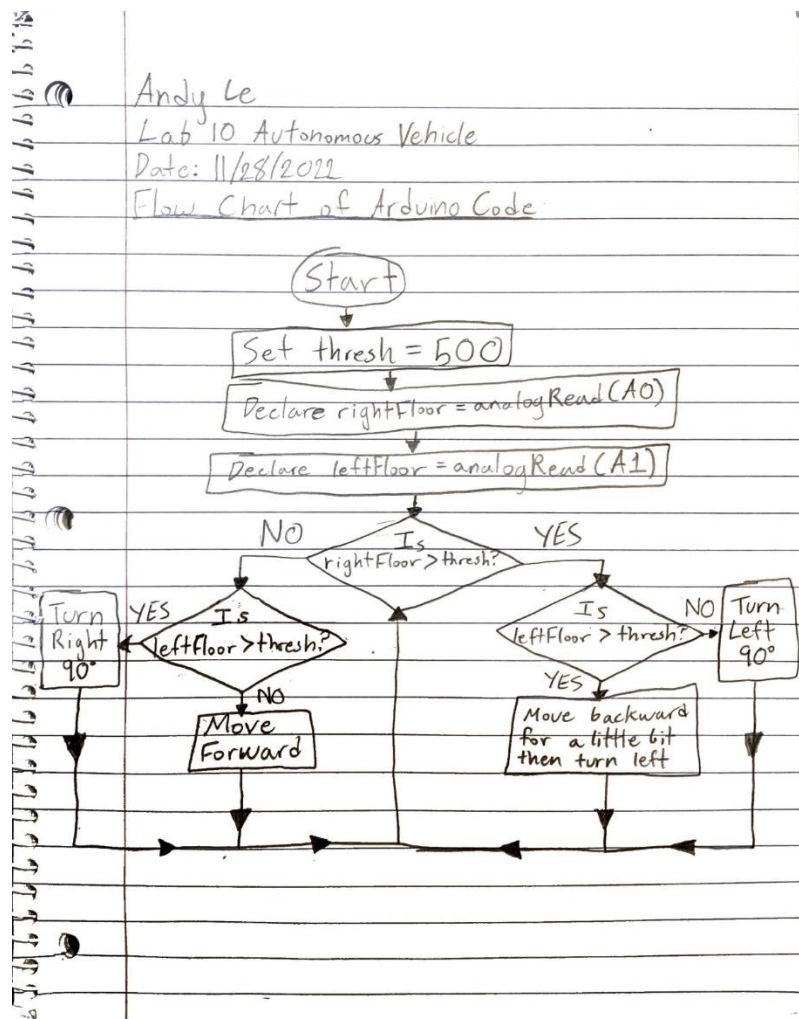 Andy Le
Lab 10 Autonomous Vehicle
Date: 11/28/2022
Flow Chart of Arduino Code
Start
Set thresh = 500
Declare rightFloor = analogRead(A0)
Declare leftFloor = analogRead(A1)
NO
Is
rightFloor > thresh?
YES
Turn
Right
90°
YES
Is
leftFloor > thresh?
NO
Move
Forward
Is
leftFloor > thresh?
NO
Turn
Left
90°
YES
Move backward
for a little bit
then turn left